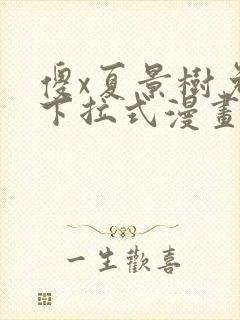 傻x夏景樹
下拉式漫畫
一生歡喜